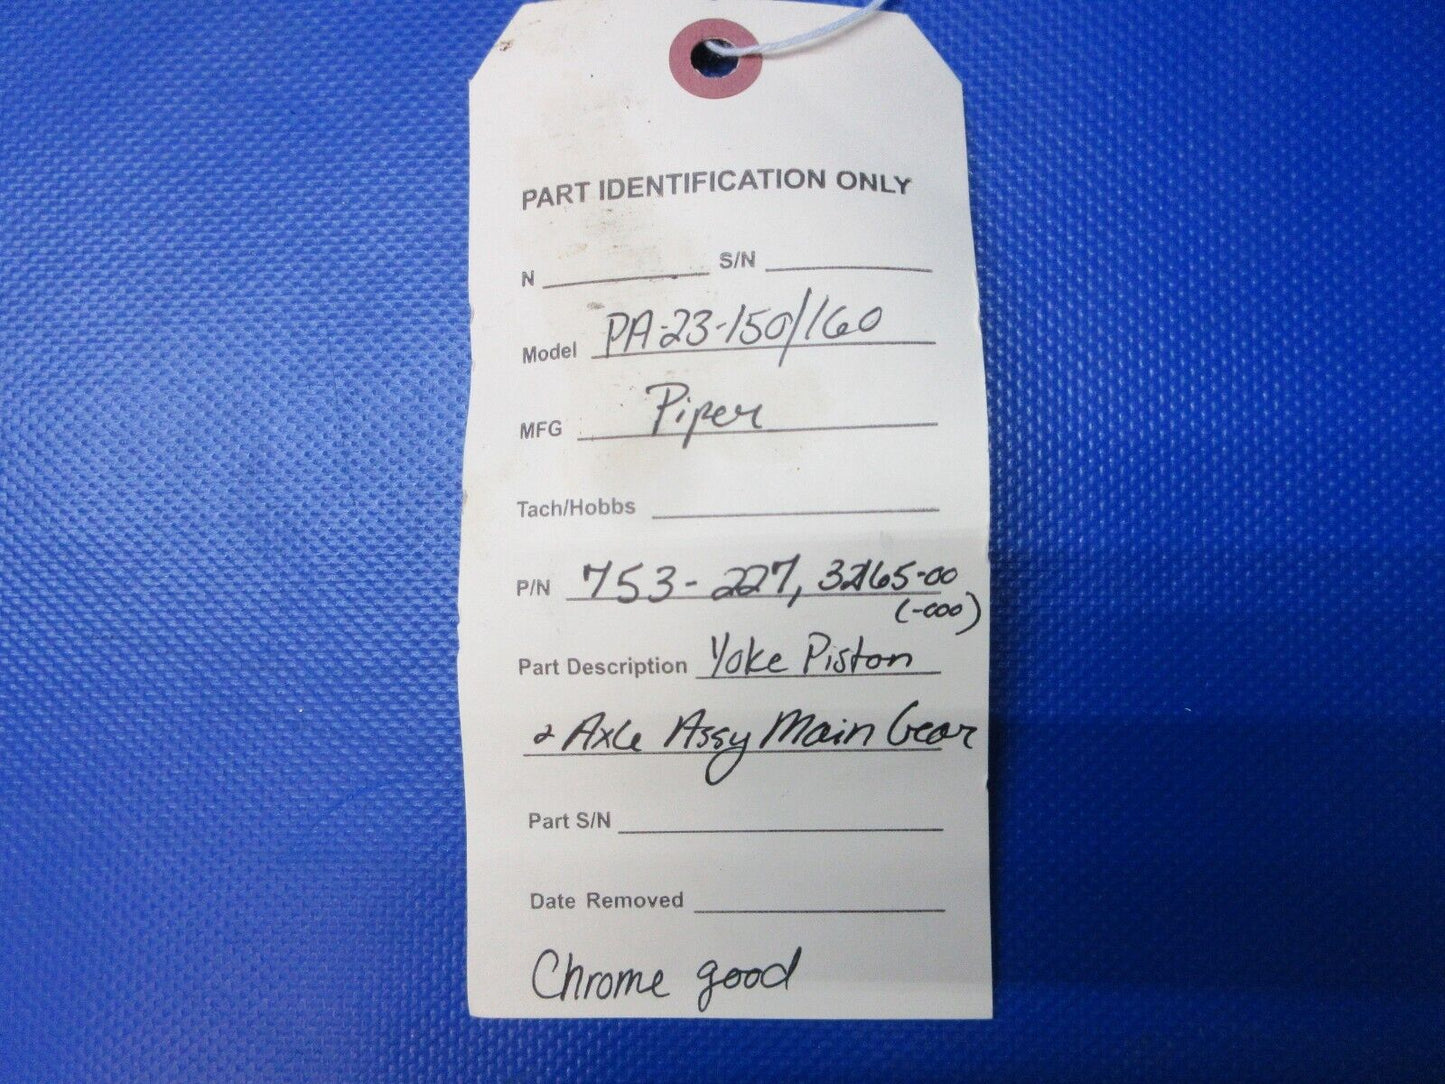 PART IDENTIFICATION ONLY
N S/N
Model PA-23-150/160
MFG Piper
Tach/Hobbs
P/N 753-227,
(-000)
Part Description Yoke Piston
& Axle Assy Main Gear
Part S/N
Date Removed
Chrome good